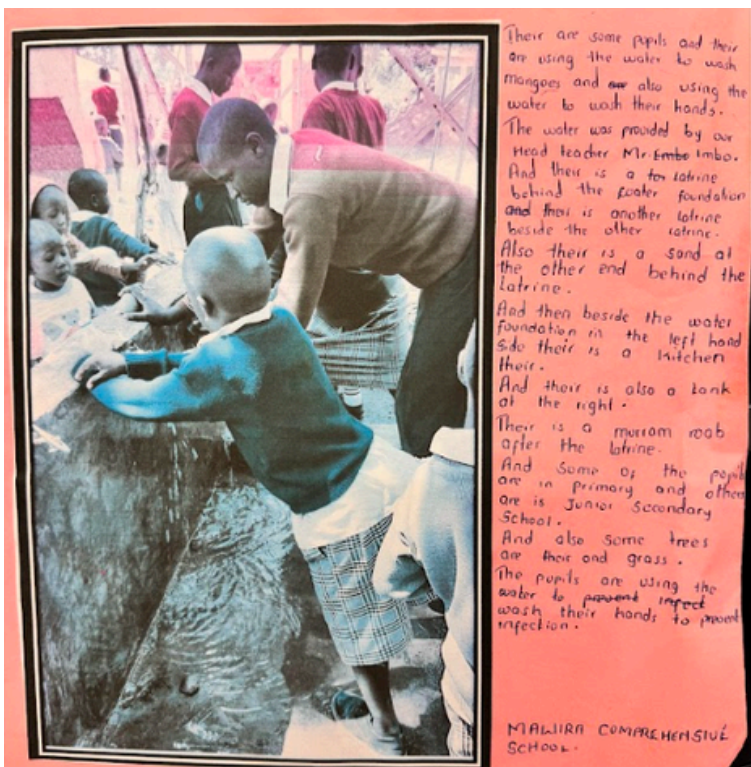 Their are some pupils and their
are using the water to wash
mangoes and also using the
water to wash their hands.
The water was provided by our
Head teacher Mr Imbo.
And their is a latrine
behind the foater foundation
and their is another latrine
beside the other latrine.
Also their is a sand at
the other end behind the
Latrine.
And then beside the water
foundation in the left hand
side their is a kitchen
their.
And their is also a tank
at the right.
Their is a murram roab
after the latrine.
And Some of the pupils
are in primary and others
are is Junior Secondary
School.
And also some trees
are their and grass.
The pupils are using the
water to
wash their hands to prevent
infection.
MAWIRA COMPREHENSIVE
SCHOOL.